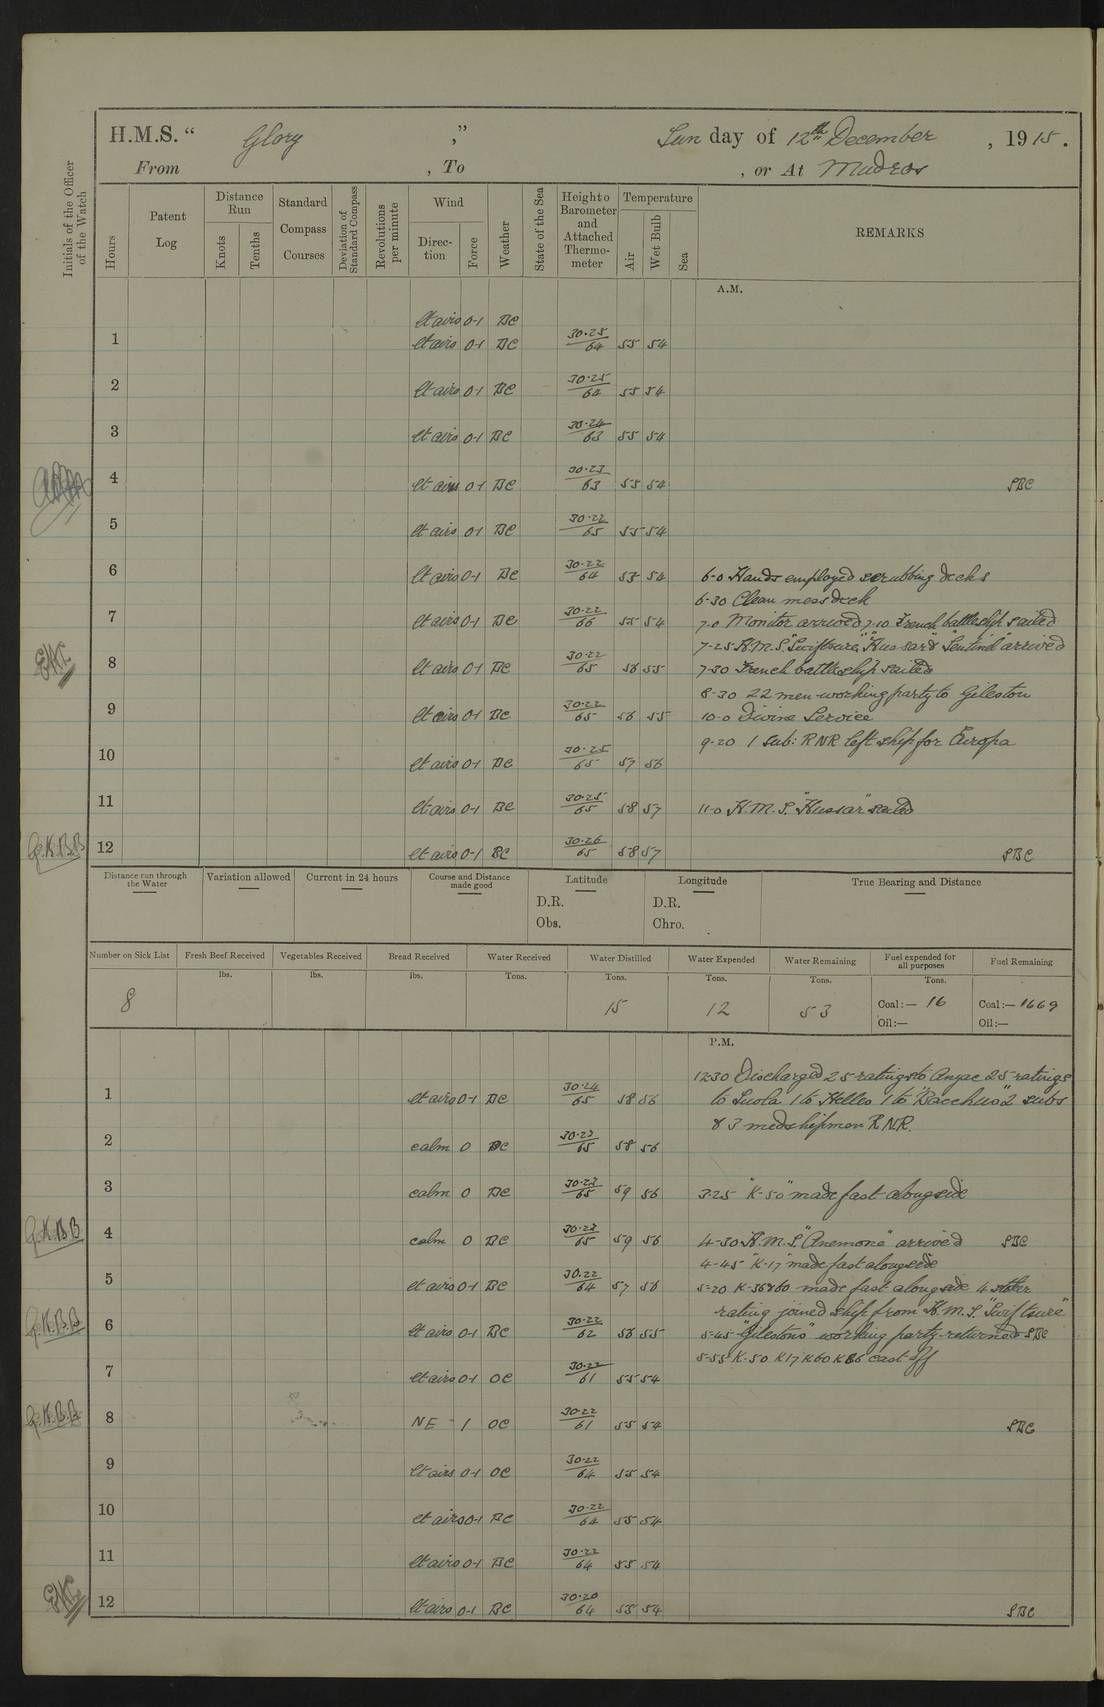 H.M.S. “ Glory ” Sun day of 12th December , 1915 .
From , To , or At Mudros
Initials of the Officer of the Watch
Hours
Patent Log
Distance Run
Knots
Tenths
Standard Compass Courses
Deviation of Standard Compass
Revolutions per minute
Wind
Direc- tion
Force
Weather
State of the Sea
Height o Barometer and Attached Thermo- meter
Temperature
Air
Wet Bulb
Sea
REMARKS
A.M.
lt airs 0-1 BC
1 lt airs 0-1 BC 30.25/64 55 54
2 lt airs 0-1 BC 30.25/64 55 54
3 lt airs 0-1 BC 30.24/63 55 54
4 lt airs 0-1 BC 30.23/63 55 54 SBC
5 lt airs 0-1 BC 30.22/65 55 54
6 lt airs 0-1 BC 30.22/64 53 54 6-0 Hands employed scrubbing decks
6-30 Clean mess deck
7 lt airs 0-1 BC 30.22/66 55 54 7-0 Monitor arrived 7-10 French battleship sailed
7-25 H.M.S. "Swiftsure," "Hussar" & "Sentinel" arrived
8 lt airs 0-1 BC 30.22/65 56 55 7-30 French battleship sailed
8-30 22 men working party to Gileston
9 lt airs 0-1 BC 30.22/65 56 55 10-0 Divine Service
9-20 1 Sub: RNR left ship for Europa
10 lt airs 0-1 BC 30.25/65 57 56
11 lt airs 0-1 BC 30.25/65 58 57 11-0 H.M.S. "Hussar" sailed
G.K.B.B 12 lt airs 0-1 BC 30.26/65 58 57 SBC
Distance run through the Water
Variation allowed
Current in 24 hours
Course and Distance made good
Latitude
D.R.
Obs.
Longitude
D.R.
Chro.
True Bearing and Distance
Number on Sick List
Fresh Beef Received
Vegetables Received
Bread Received
Water Received
Water Distilled
Water Expended
Water Remaining
Fuel expended for all purposes
Fuel Remaining
lbs. lbs. lbs. Tons. Tons. Tons. Tons. Tons.
8 15 12 53 Coal:— 16 Coal:— 1669
Oil:— Oil:—
P.M.
12-30 Discharged 25 ratings to Anzac 25 ratings
1 lt airs 0-1 BC 30.24/65 58 56 to Suvla 1 to Helles 1 to "Bacchus" 2 subs
& 3 midshipmen RNR.
2 calm 0 BC 30.23/65 58 56
3 calm 0 BC 30.23/65 59 56 3-25 "K-50" made fast alongside
G.K.B.B 4 calm 0 BC 30.23/65 59 56 4-30 H.M.S. "Anemone" arrived SBC
4-45 "K-17" made fast alongside
5 lt airs 0-1 BC 30.22/64 57 56 5-20 K-36&60 made fast alongside 4 stoker
rating joined ship from H.M.S. "Swiftsure"
G.K.B.B 6 lt airs 0-1 BC 30.22/62 56 55 5-45 "Gilestons" working party returned SBC
5-55 K-50 K17 K60 K86 cast off
7 lt airs 0-1 OC 30.22/61 55 54
G.K.B.B 8 NE 1 OC 30.22/61 55 54 SBC
9 lt airs 0-1 OC 30.22/64 55 54
10 lt airs 0-1 BC 30.22/64 55 54
11 lt airs 0-1 BC 30.22/64 55 54
12 lt airs 0-1 BC 30.20/64 55 54 SBC